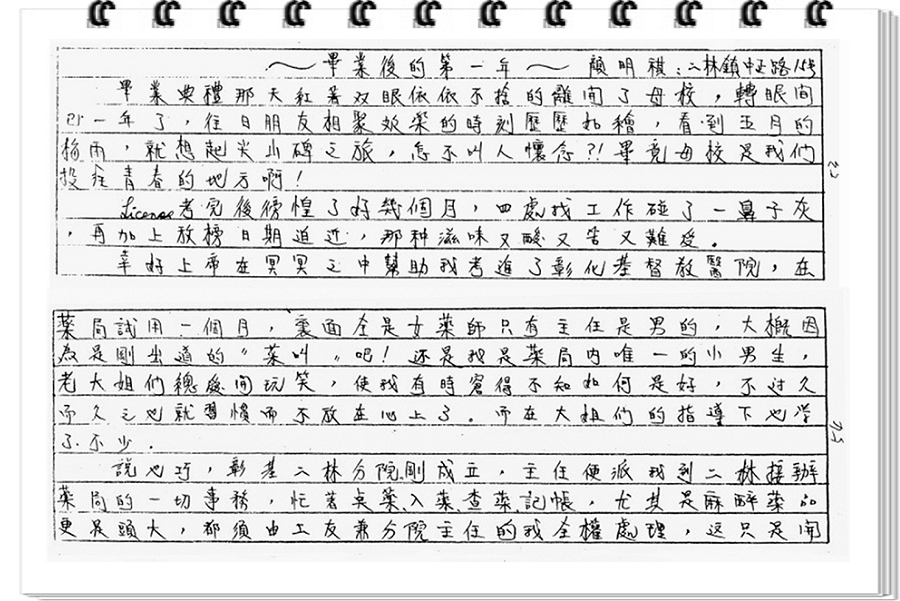 ～畢業後的第一年～ 簡明祺：二林鎮中正路155號
畢業典禮那天紅著双眼依依不捨的離開了母校，轉眼間
一年了，往日朋友相聚效樂的時刻歷歷如繪，看到五月的
梅雨，就想起尖山碑之旅，怎不叫人懷念?!畢竟母校是我們
投注青春的地方啊！
License考完後徬惶了好幾個月，四處找工作碰了一鼻子灰
，再加上放榜日期迫近，那种滋味又酸又苦又難受。
幸好上帝在冥冥之中幫助我考進了彰化基督教醫院，在
薬局試用一個月，裏面全是女薬師只有主任是男的，大概因
為是剛出道的〝菜叫〞吧！还是我是薬局內唯一的小男生，
老大姐們總愛開玩笑，使我有時窘得不知如何是好，不过久
而久之也就習慣而不放在心上了。而在大姐們的指導下也学
了不少.
說也巧，彰基二林分院剛成立，主任便派我到二林接辦
薬局的一切事務，忙著点薬、入薬、查薬、記帳，尤其是麻醉薬品
更是頭大，都須由工友兼分院主任的我全權處理，这只是開